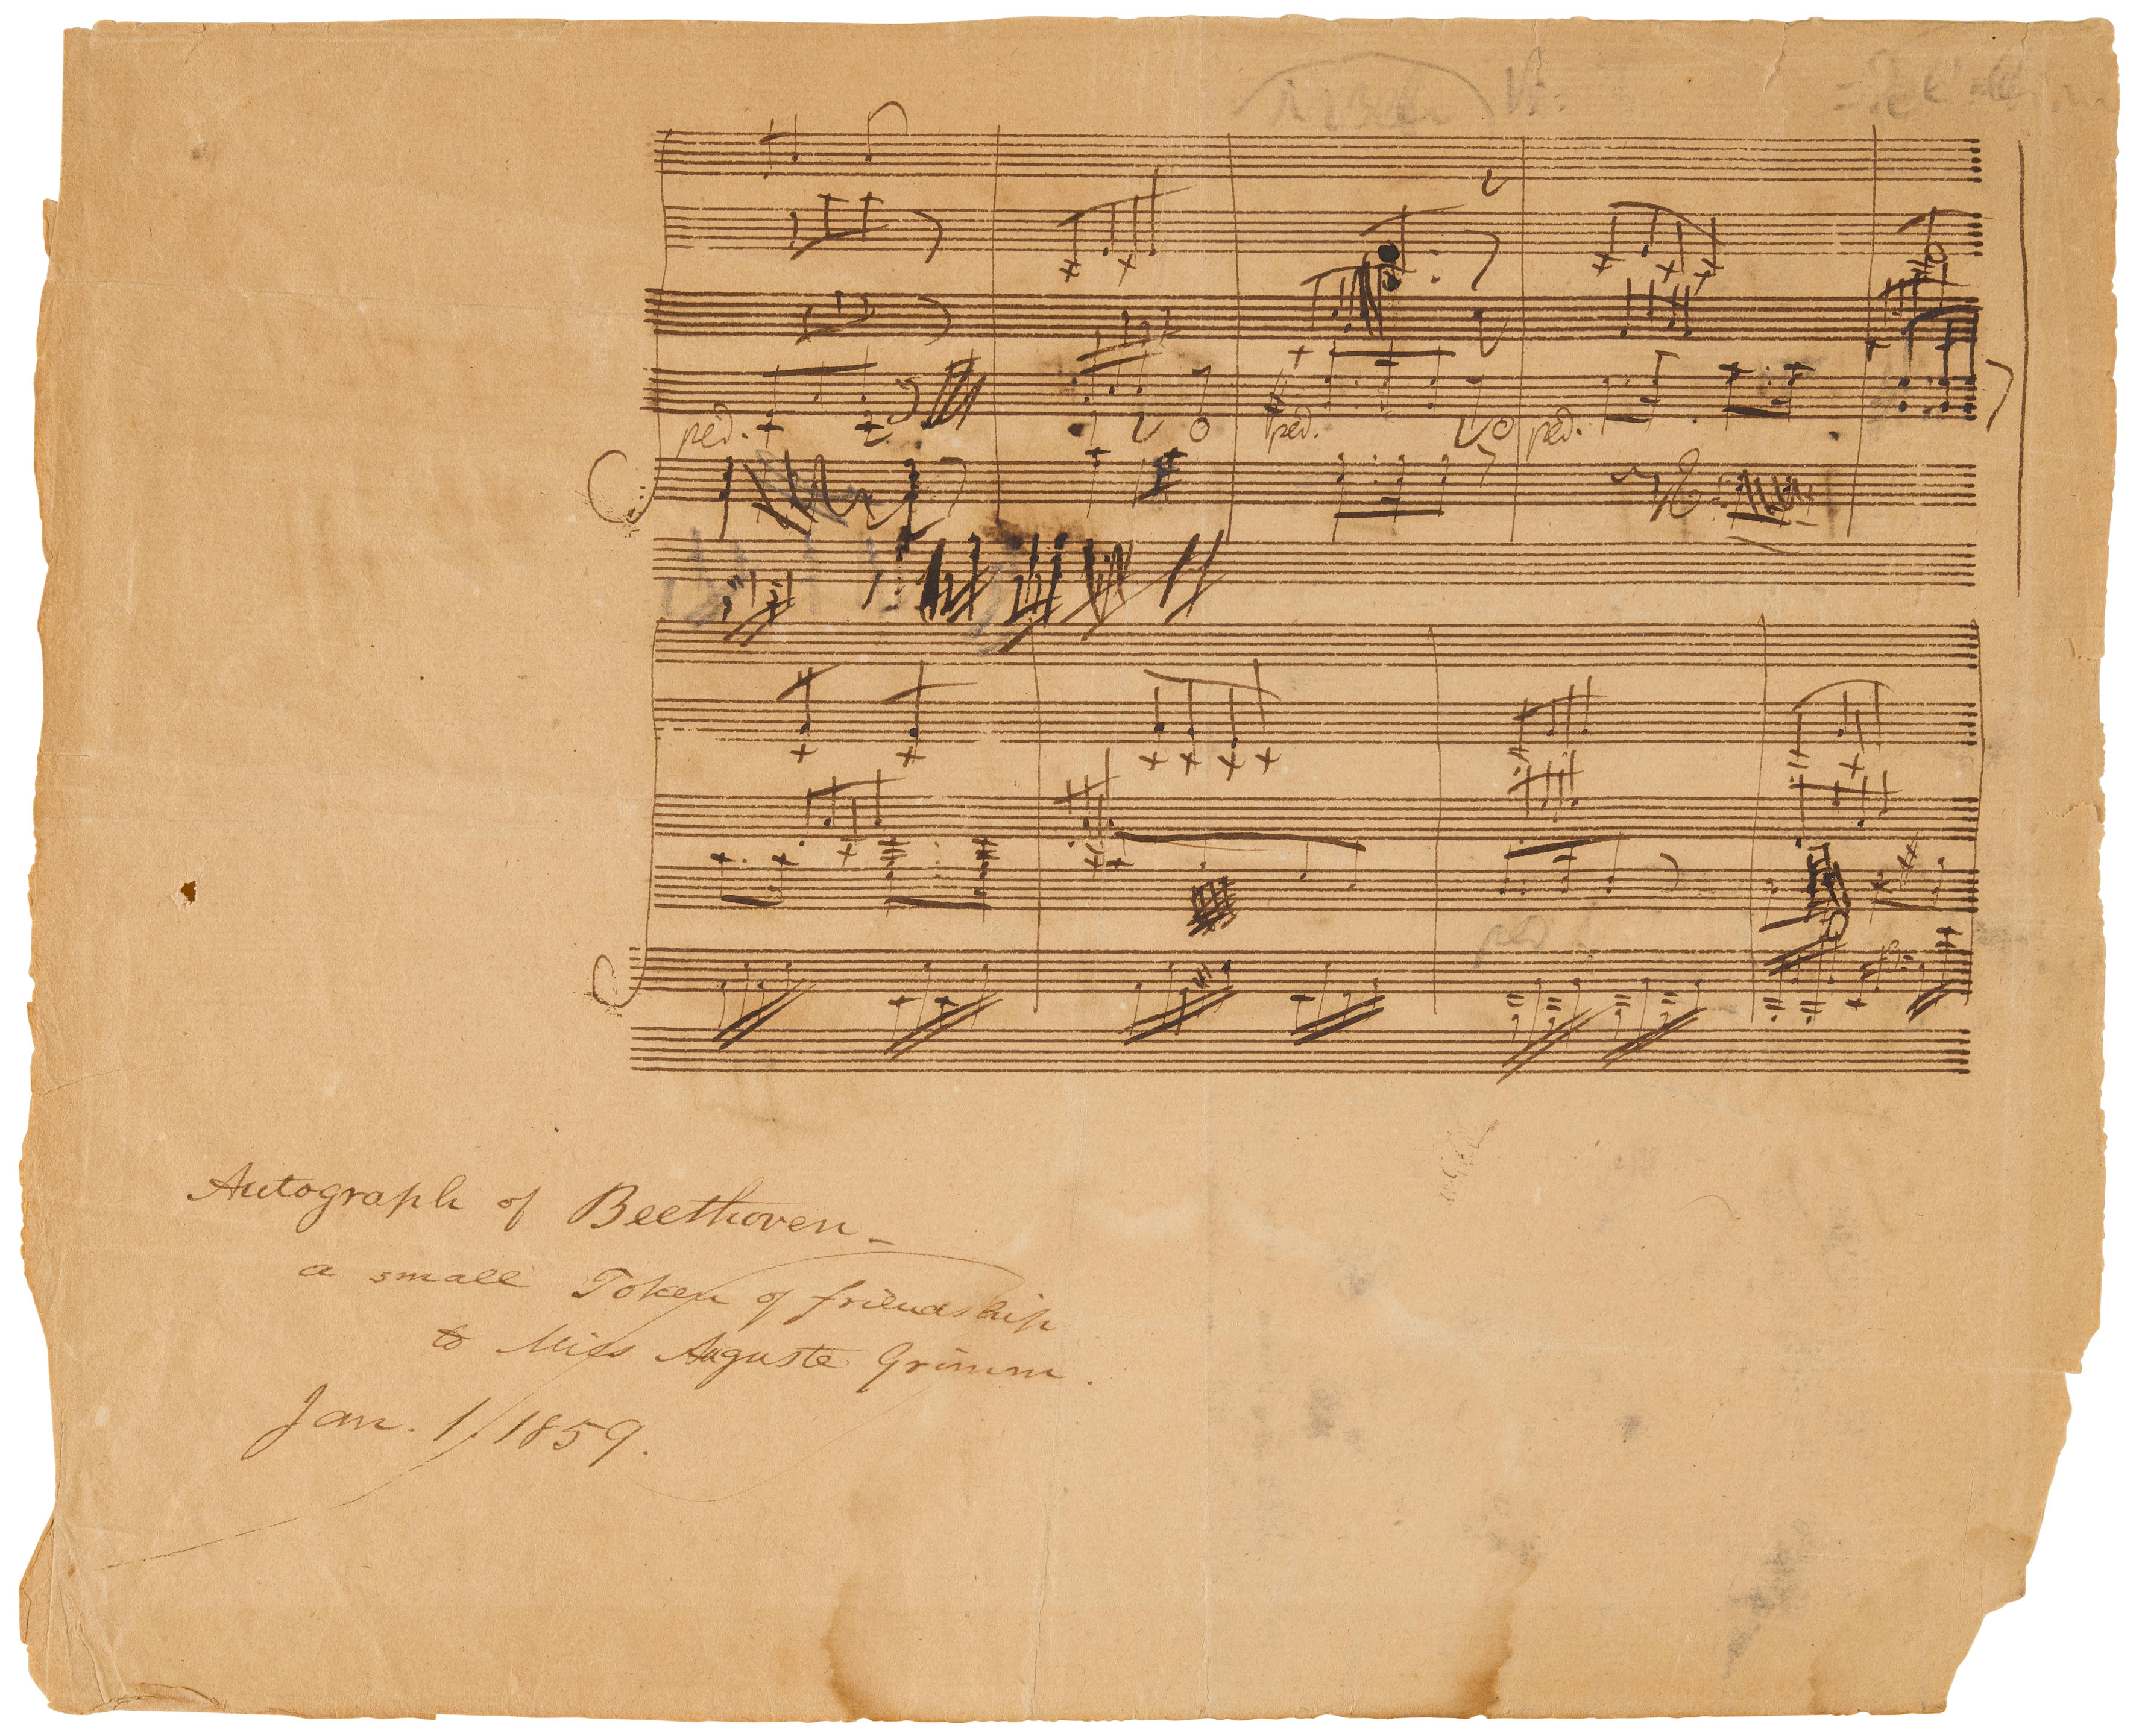 ped.
ped.
ped.
Autograph of Beethoven –
a small Token of friendship
to Miss Auguste Grimm.
Jan. 1. 1859.